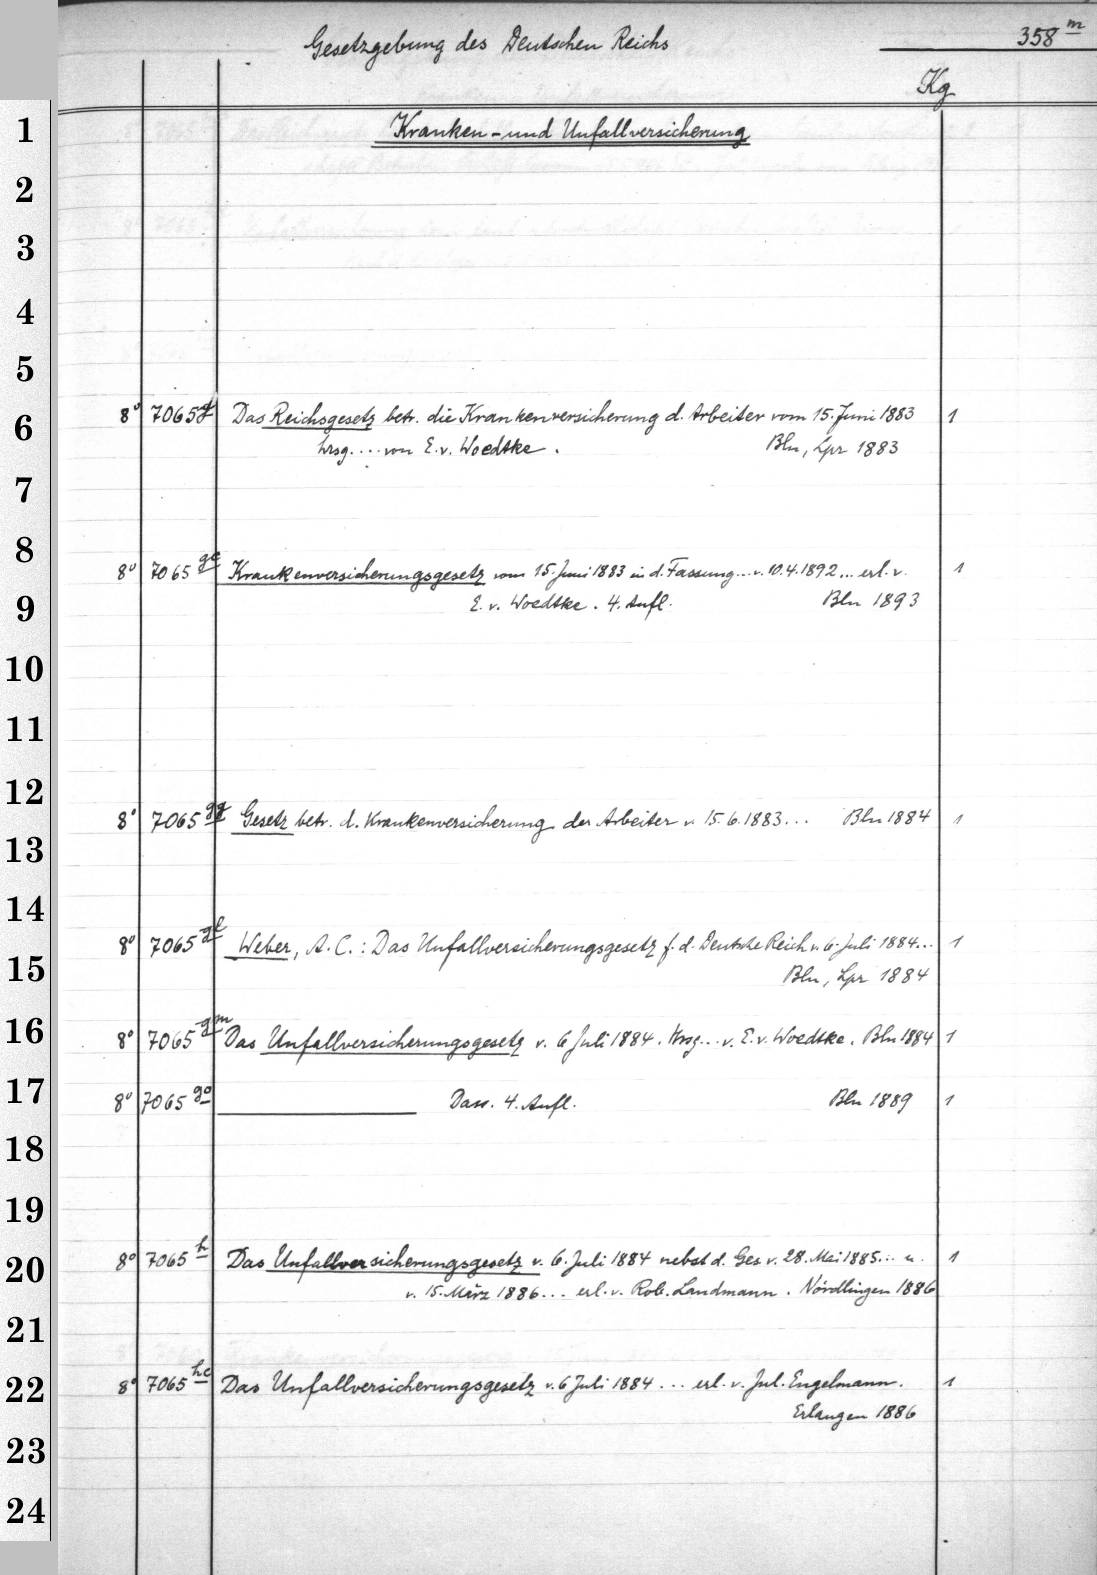 Gesetzgebung des Deutschen Reichs 358 m
Kg
1 Kranken-und Unfallversicherung
2
3
4
5
6 8° 7065 g Das Reichsgesetz betr. die Krankenversicherung d. Arbeiter vom 15. Juni 1883 1
hrsg.... von E. v. Woedtke. Bln, Lpz 1883
7
8 8° 7065 gc Krankenversicherungsgesetz vom 15. Juni 1883 in d. Fassung... v. 10.4.1892... erl. v. 1
9 E. v. Woedtke. 4. Aufl. Bln 1893
10
11
12 8° 7065 gg Gesetz betr. d. Krankenversicherung der Arbeiter v. 15.6.1883... Bln 1884 1
13
14
8° 7065 gl Weber, A. C.: Das Unfallversicherungsgesetz f. d. Deutsche Reich v. 6. Juli 1884... 1
15 Bln, Lpz 1884
16 8° 7065 gm Das Unfallversicherungsgesetz v. 6 Juli 1884. Hrsg... v. E. v. Woedtke. Bln 1884 1
17 8° 7065 go Dass. 4. Aufl. Bln 1889 1
18
19
20 8° 7065 h Das Unfallversicherungsgesetz v. 6. Juli 1884 nebst d. Ges v. 28. Mai 1885... u. 1
v. 15. März 1886... erl. v. Rob. Landmann. Nördlingen 1886
21
22 8° 7065 hc Das Unfallversicherungsgesetz v. 6 Juli 1884... erl. v. Jul. Engelmann. 1
Erlangen 1886
23
24